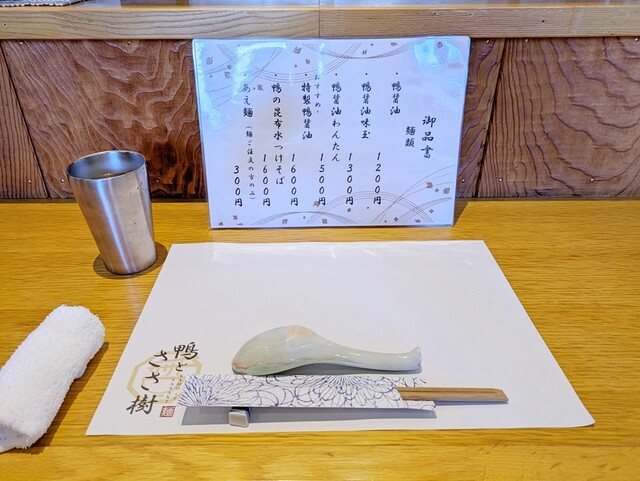 御品書
麺類
・鴨醤油 1200円
・鴨醤油味玉 1300円
・鴨醤油わんたん 1500円
おすすめ！
・特製鴨醤油 1600円
・鴨の昆布水つけそば 1600円
・あえ麺（麺ご注文の方のみ） 300円
鴨と
ささ樹